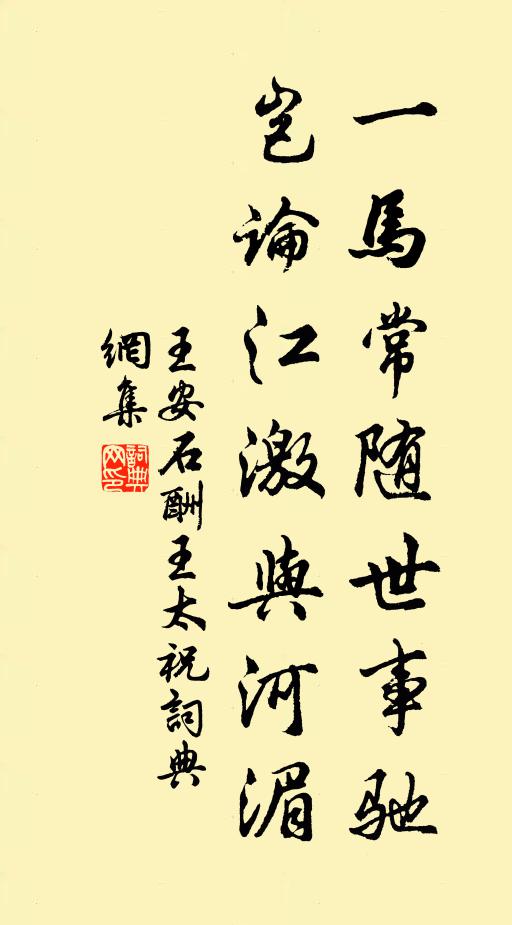 一馬常随世事馳
豈論江激與河湄
王安石酬王太祝詞典
網集
詞典
网印